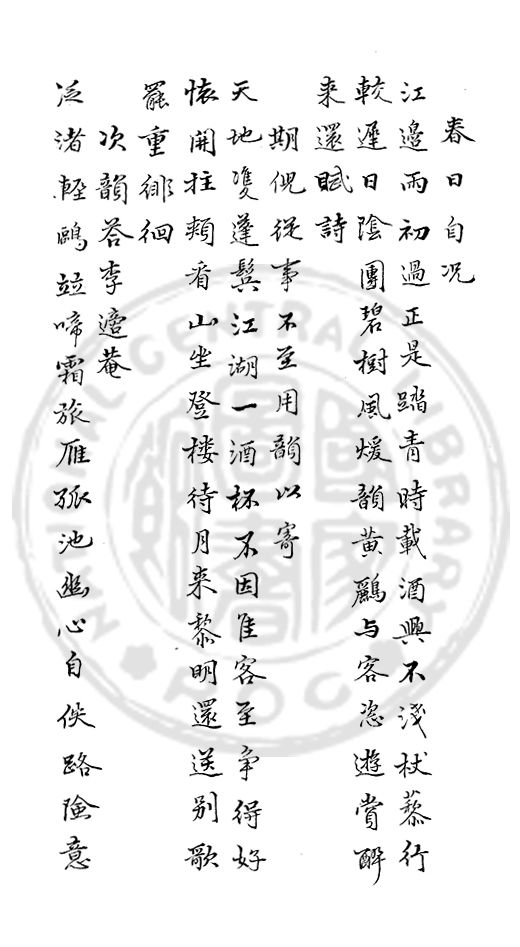 春日自況
江邊雨初過正是踏青時載酒興不淺杖藜行
較遲日陰團碧樹風煖韻黃鸝与客恣遊賞醉
来還賦詩
期倪從事不至用韻以寄
天地雙蓬鬂江湖一酒杯不因隹客至爭得好
懷開拄頰看山坐登楼待月来黎明還送别歌
罷重徘徊
次韻荅李菴
泛渚輕鷗竝啼霜旅雁孤池幽心自佚路險意
NATIONAL CENTRAL LIBRARY
ROC